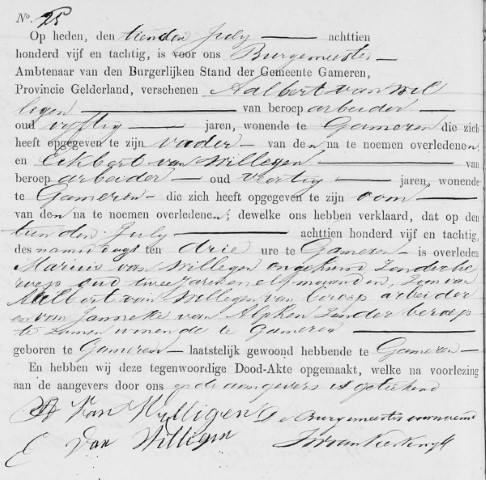 No. 25
Op heden, den tienden July achttien
honderd vijf en tachtig, is voor ons Burgemeester
Ambtenaar van den Burgerlijken Stand der Gemeente Gameren,
Provincie Gelderland, verschenen Aalbert van Wil
ligen van beroep arbeider
oud vyftig jaren, wonende te Gameren die zich
heeft opgegeven te zijn vader van den na te noemen overledene,
en Eckbert van Willegen van
beroep arbeider oud veertig jaren, wonende
te Gameren die zich heeft opgegeven te zijn oom
van den na te noemen overledene; dewelke ons hebben verklaard, dat op den
tienden July achttien honderd vijf en tachtig,
des namiddags ten drie ure te Gameren is overleden
Marinus van Willegen ongehuwd zonder be
roep oud twee jaren en elf maanden, zoon van
Aalbert van Willegen van beroep arbeider
en van Janneke van Alphen zonder beroep
te zamen wonende te Gameren
geboren te Gameren laatstelijk gewoond hebbende te Gameren
En hebben wij deze tegenwoordige Dood-Akte opgemaakt, welke na voorlezing
aan de aangevers door ons en de aangevers is geteekend
A Van Willigen De Burgemeester voornoemd
E Van Willigen